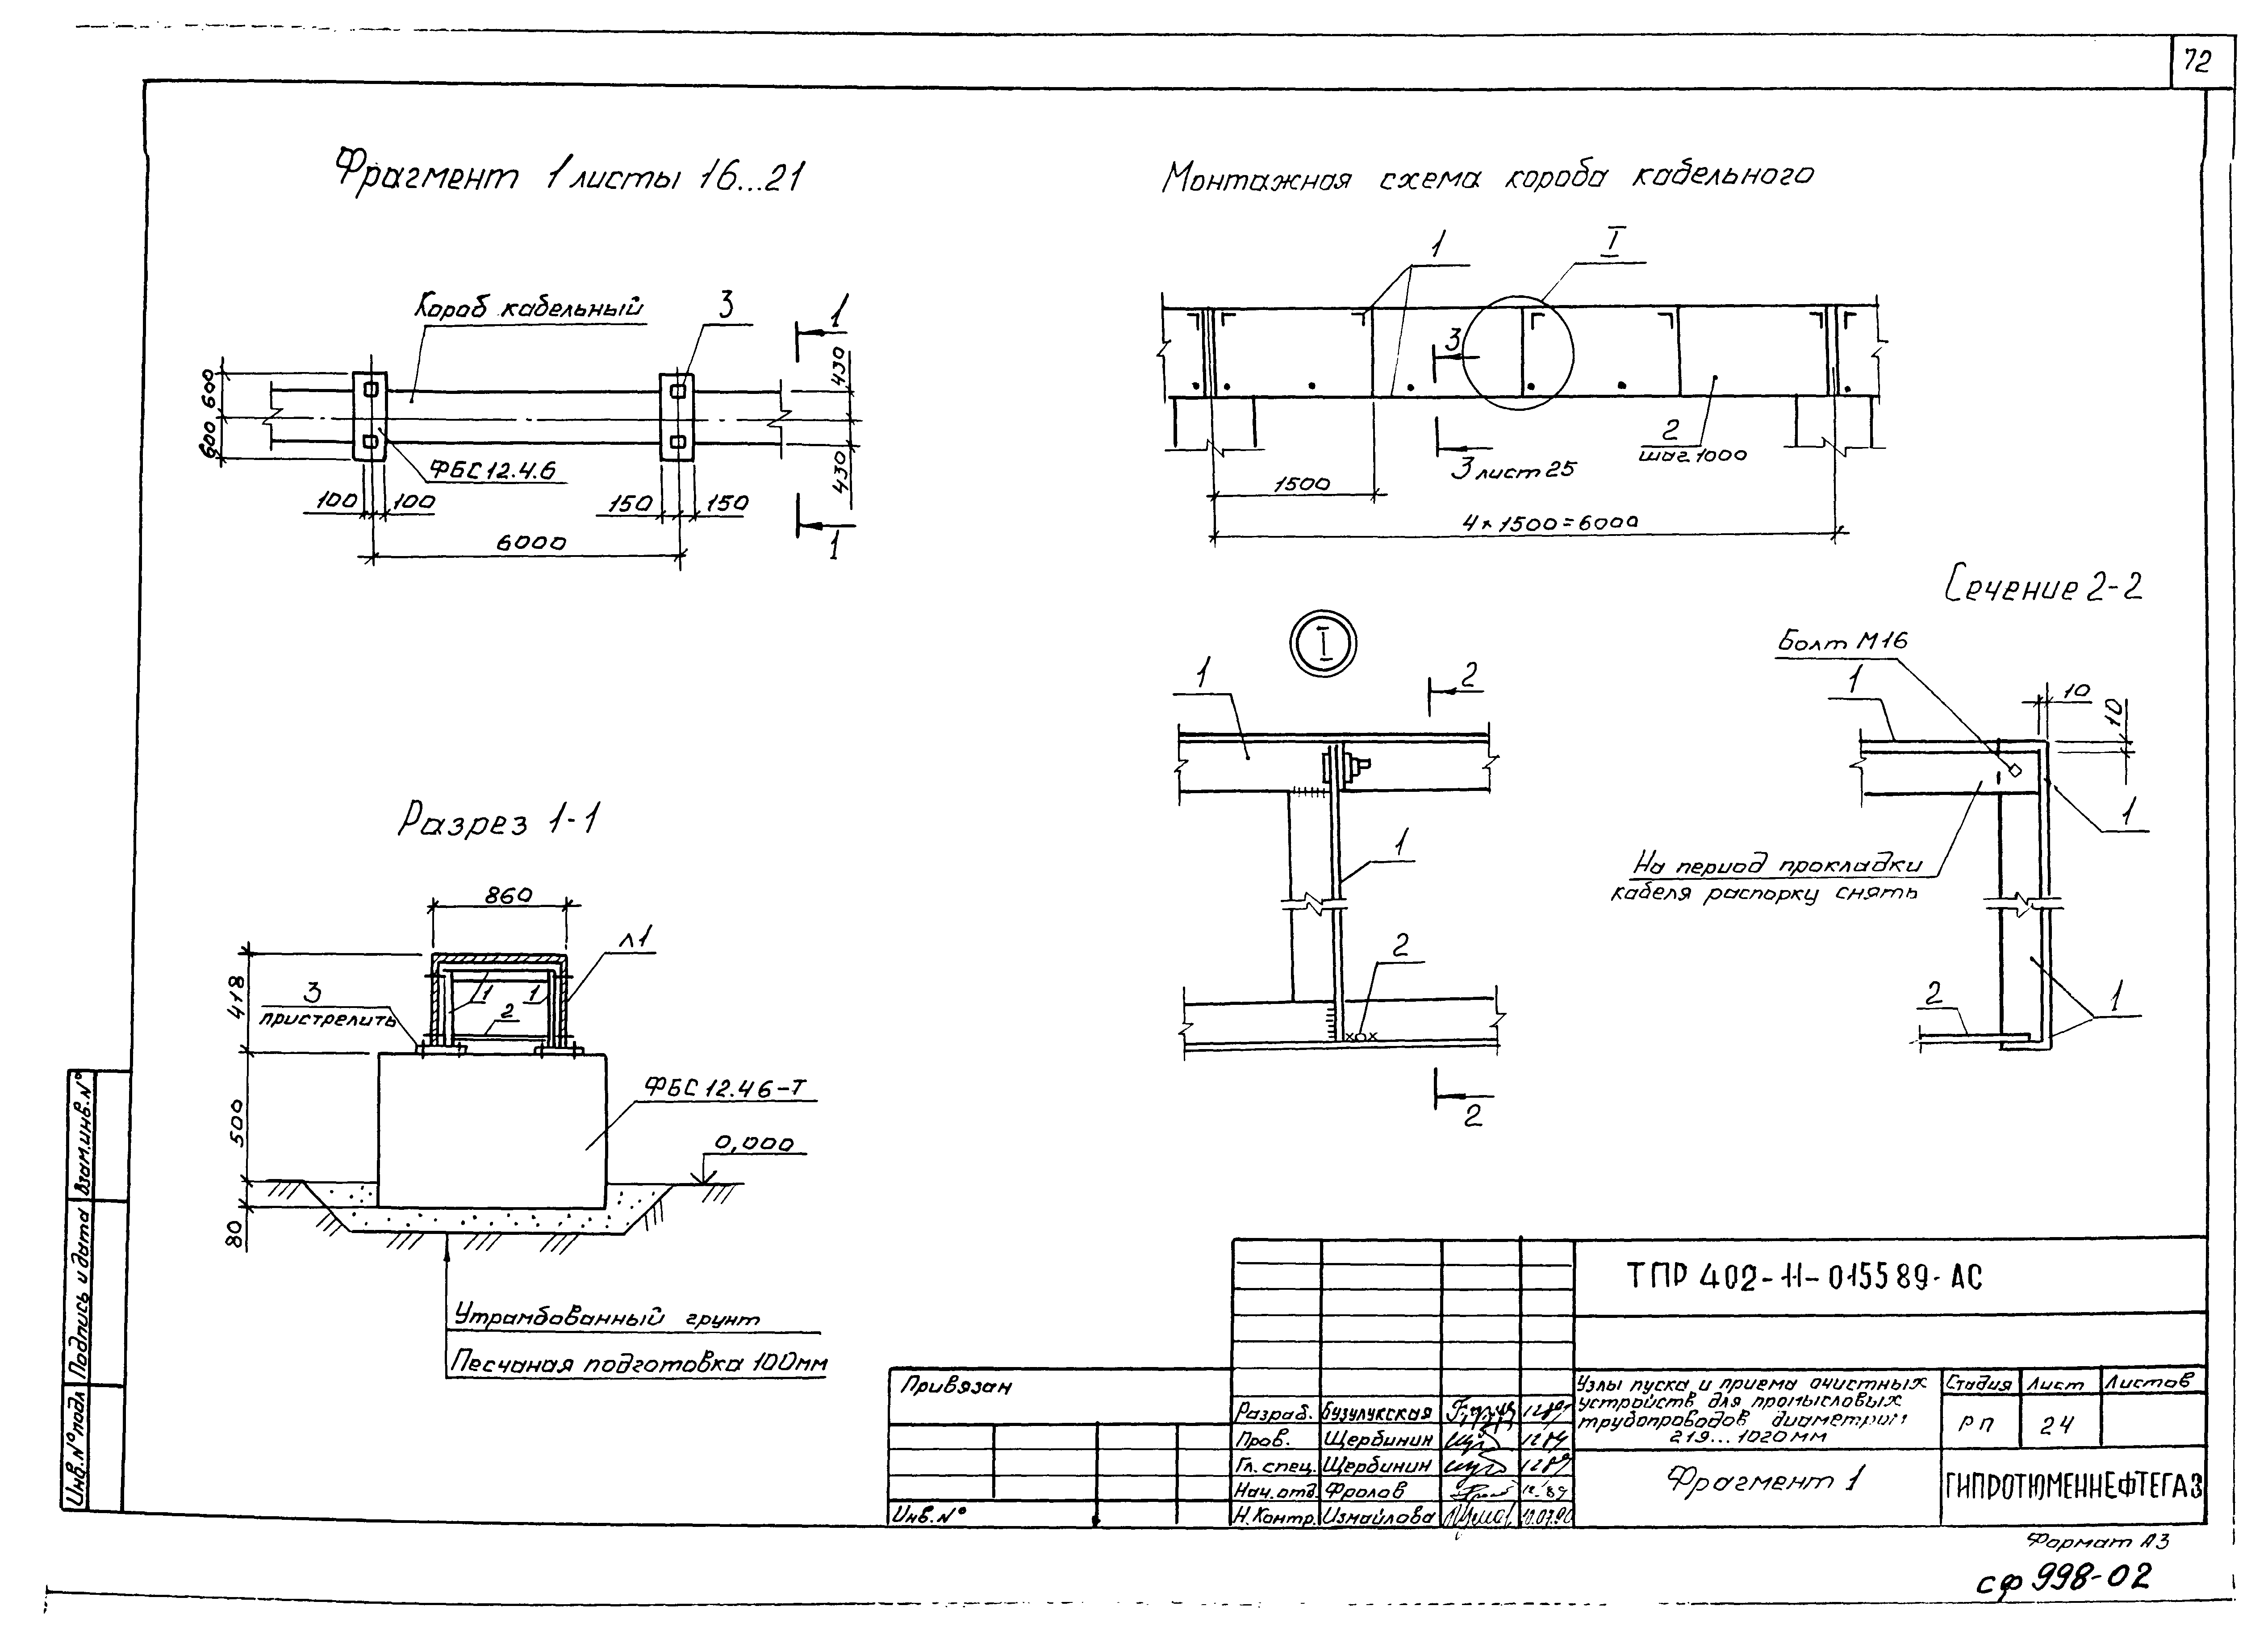 72
Фрагмент 1 листы 16...21
Монтажная схема короба кабельного
Короб кабельный
3
1
600
600
430
430
ФБС 12.4.6
100
100
150
150
6000
1
1
I
3
2
шаг 1000
3 лист 25
1500
4×1500=6000
Сечение 2-2
I
1
2
1
2
2
Болт М16
1
10
10
1
На период прокладки
кабеля распорку снять
2
1
Разрез 1-1
860
л1
418
3
пристрелить
1
1
2
ФБС 12.4 6-Т
500
0,000
80
Утрамбованный грунт
Песчаная подготовка 100мм
Взам.инв.N°
Подпись и дата
Инв.N°подл
ТПР 402-11-015589-АС
Привязан
Инв.N°
Разраб. Бузулукская 1289
Пров. Щербинин 1289
Гл. спец. Щербинин 1289
Нач.отд. Фролов 12.89
Н.Контр. Измайлова 10.07.90
Узлы пуска и приема очистных
устройств для промысловых
трубопроводов диаметром
219...1020мм
Стадия Лист Листов
РП 24
Фрагмент 1
ГИПРОТЮМЕННЕФТЕГАЗ
Формат А3
сф 998-02